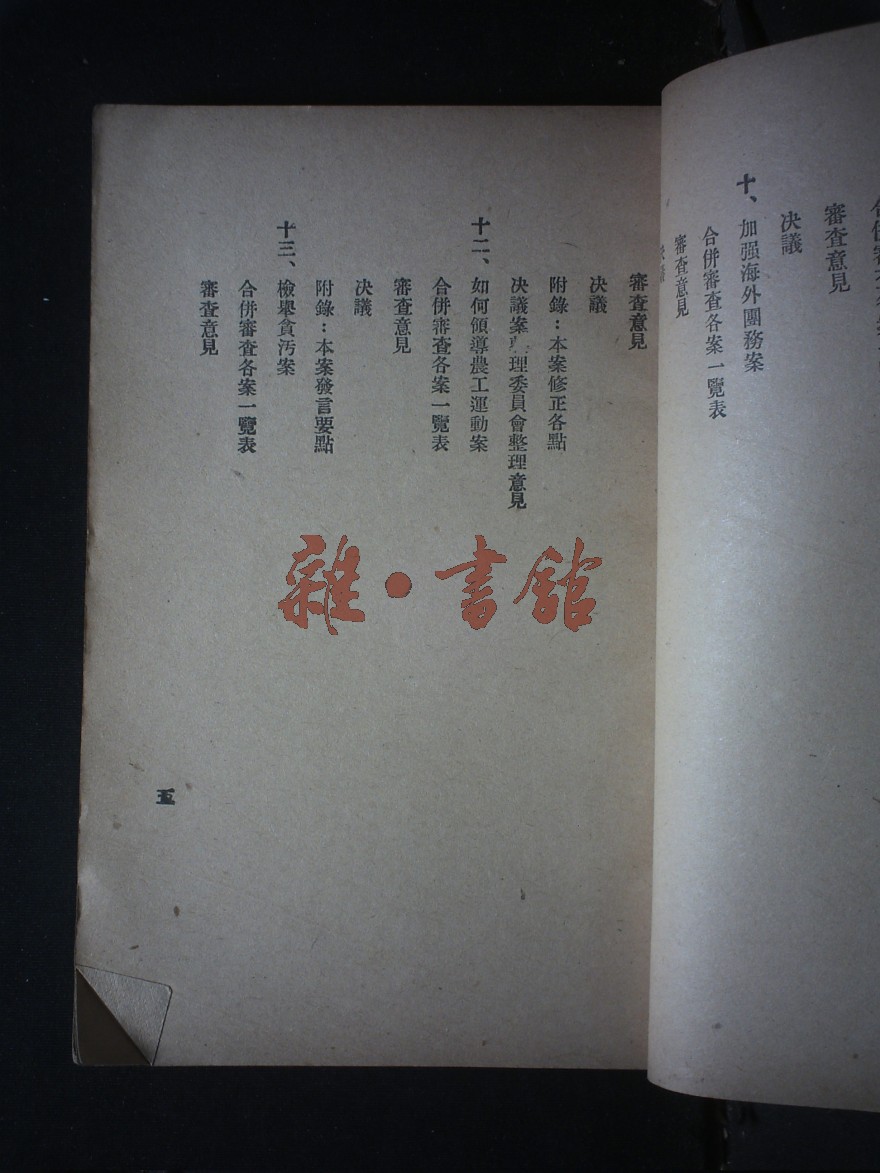 審查意見
決議
十、加强海外團務案
合併審查各案一覽表
審查意見
審查意見
決議
附錄：本案修正各點
決議案 理委員會整理意見
十二、如何領導農工運動案
合併審查各案一覽表
審查意見
決議
附錄：本案發言要點
十三、檢舉貪汚案
合併審查各案一覽表
審查意見
五
雜·書館